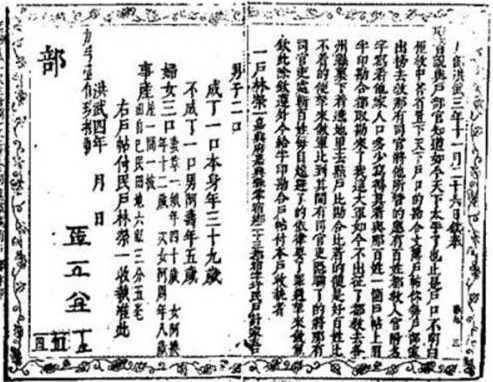 部洪武三年十一月二十六日欽奉
聖旨說與戶部官知道如今天下太平了也止是戶口不明白
俚教中書省置下天下戶口的勘合文簿戶帖你每戶部家
出榜去教那有司官將他所管的應有百姓都教入官附名
字寫着他家人口多少寫得真着與那百姓一箇戶帖上用
半印勘合都取勘來了我這大軍如今不出征了都教去各
州縣裏下着遶地里去點戶比勘合比着的便是好百姓比
不着的便拿來做軍比到其間有司官吏隱瞞了的將那有
司官吏處斬百姓每自躲避了的依律要了罪過拿來做軍
欽此除欽遵外今給半印勘合戶帖付本戶收執者
一戶林榮一嘉興府嘉興縣零宿鄉二十三都宿字圩民戶計家五口
男子二口
成丁一口本身年三十九歲
不成丁一口男阿壽年五歲
婦女三口妻章一娘年四十歲 女阿換
年十二歲 次女阿周年八歲
事產屋一間一披
田自己民田地六畝三分五毫
右戶帖付民戶林榮一收執准此
洪武四年 月 日
部